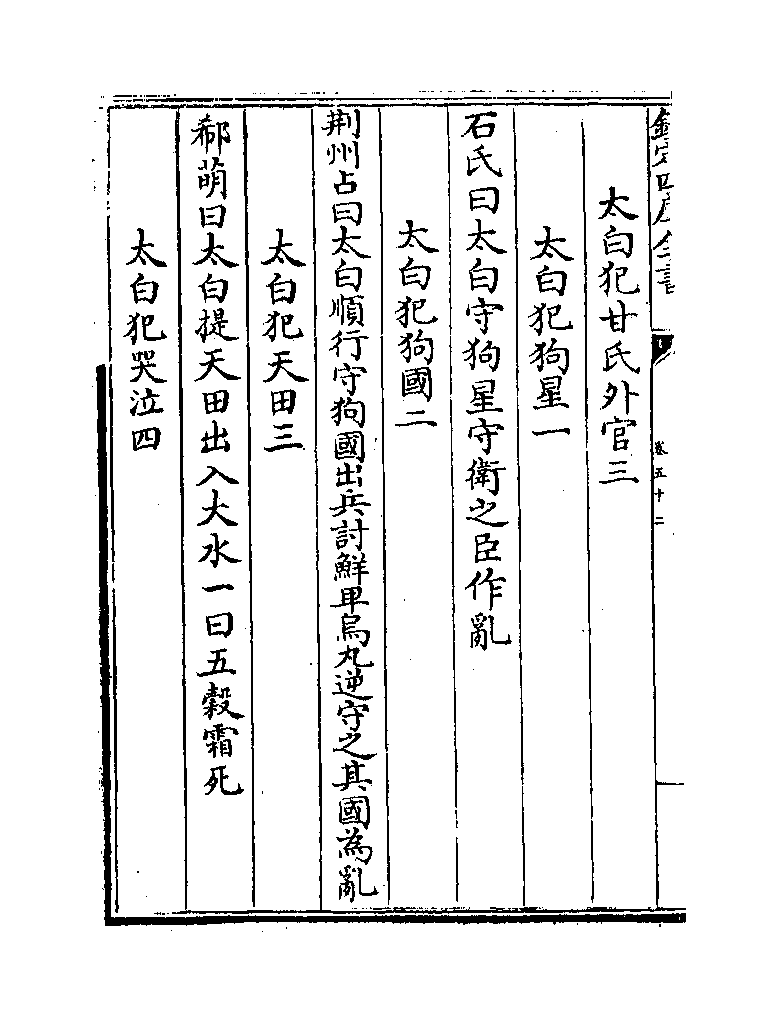 欽定四庫全書
卷五十二
太白犯甘氏外官三
太白犯狗星一
石氏曰太白守狗星守衛之臣作亂
太白犯狗國二
荆州占曰太白順行守狗國出兵討鮮卑烏丸逆守之其國為亂
太白犯天田三
郗萌曰太白提天田出入大水一曰五穀霜死
太白犯哭泣四